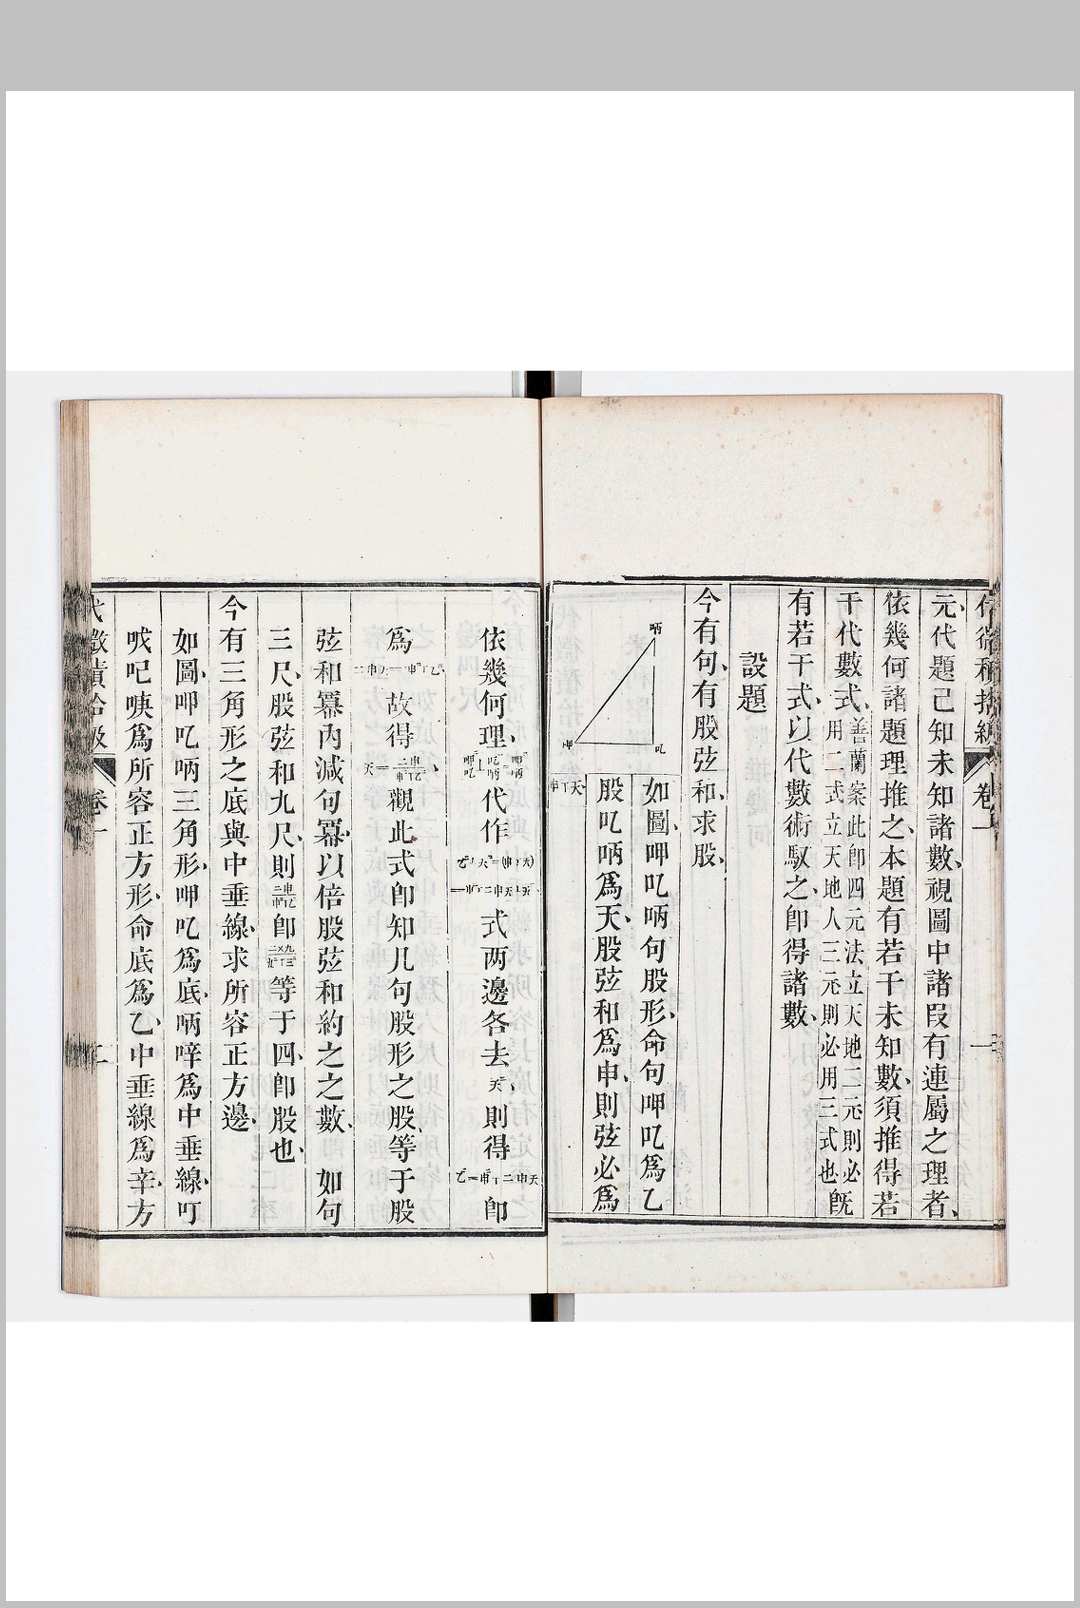 元代題已知未知諸數視圖中諸段有連屬之理者
依幾何諸題理推之本題有若干未知數須推得若
干代數式善蘭案此卽四元法立天地二元則必用二式立天地人三元則必用三式也旣
有若干式以代數術馭之卽得諸數
設題
今有句有股弦和求股
如圖呷吃唡句股形命句呷吃爲乙
股吃唡爲天股弦和爲申則弦必爲
依幾何理
代作
式两邊各去天則得
卽
爲
故得
觀此式卽知凡句股形之股等于股
弦和冪內減句冪以倍股弦和約之之數 如句
三尺股弦和九尺則
卽
等于四卽股也
今有三角形之底與中垂線求所容正方邊
如圖呷吃唡三角形呷吃爲底唡㖕爲中垂線叮
爲所容正方形命底爲乙中垂線爲辛方
代數積拾級
卷一
二